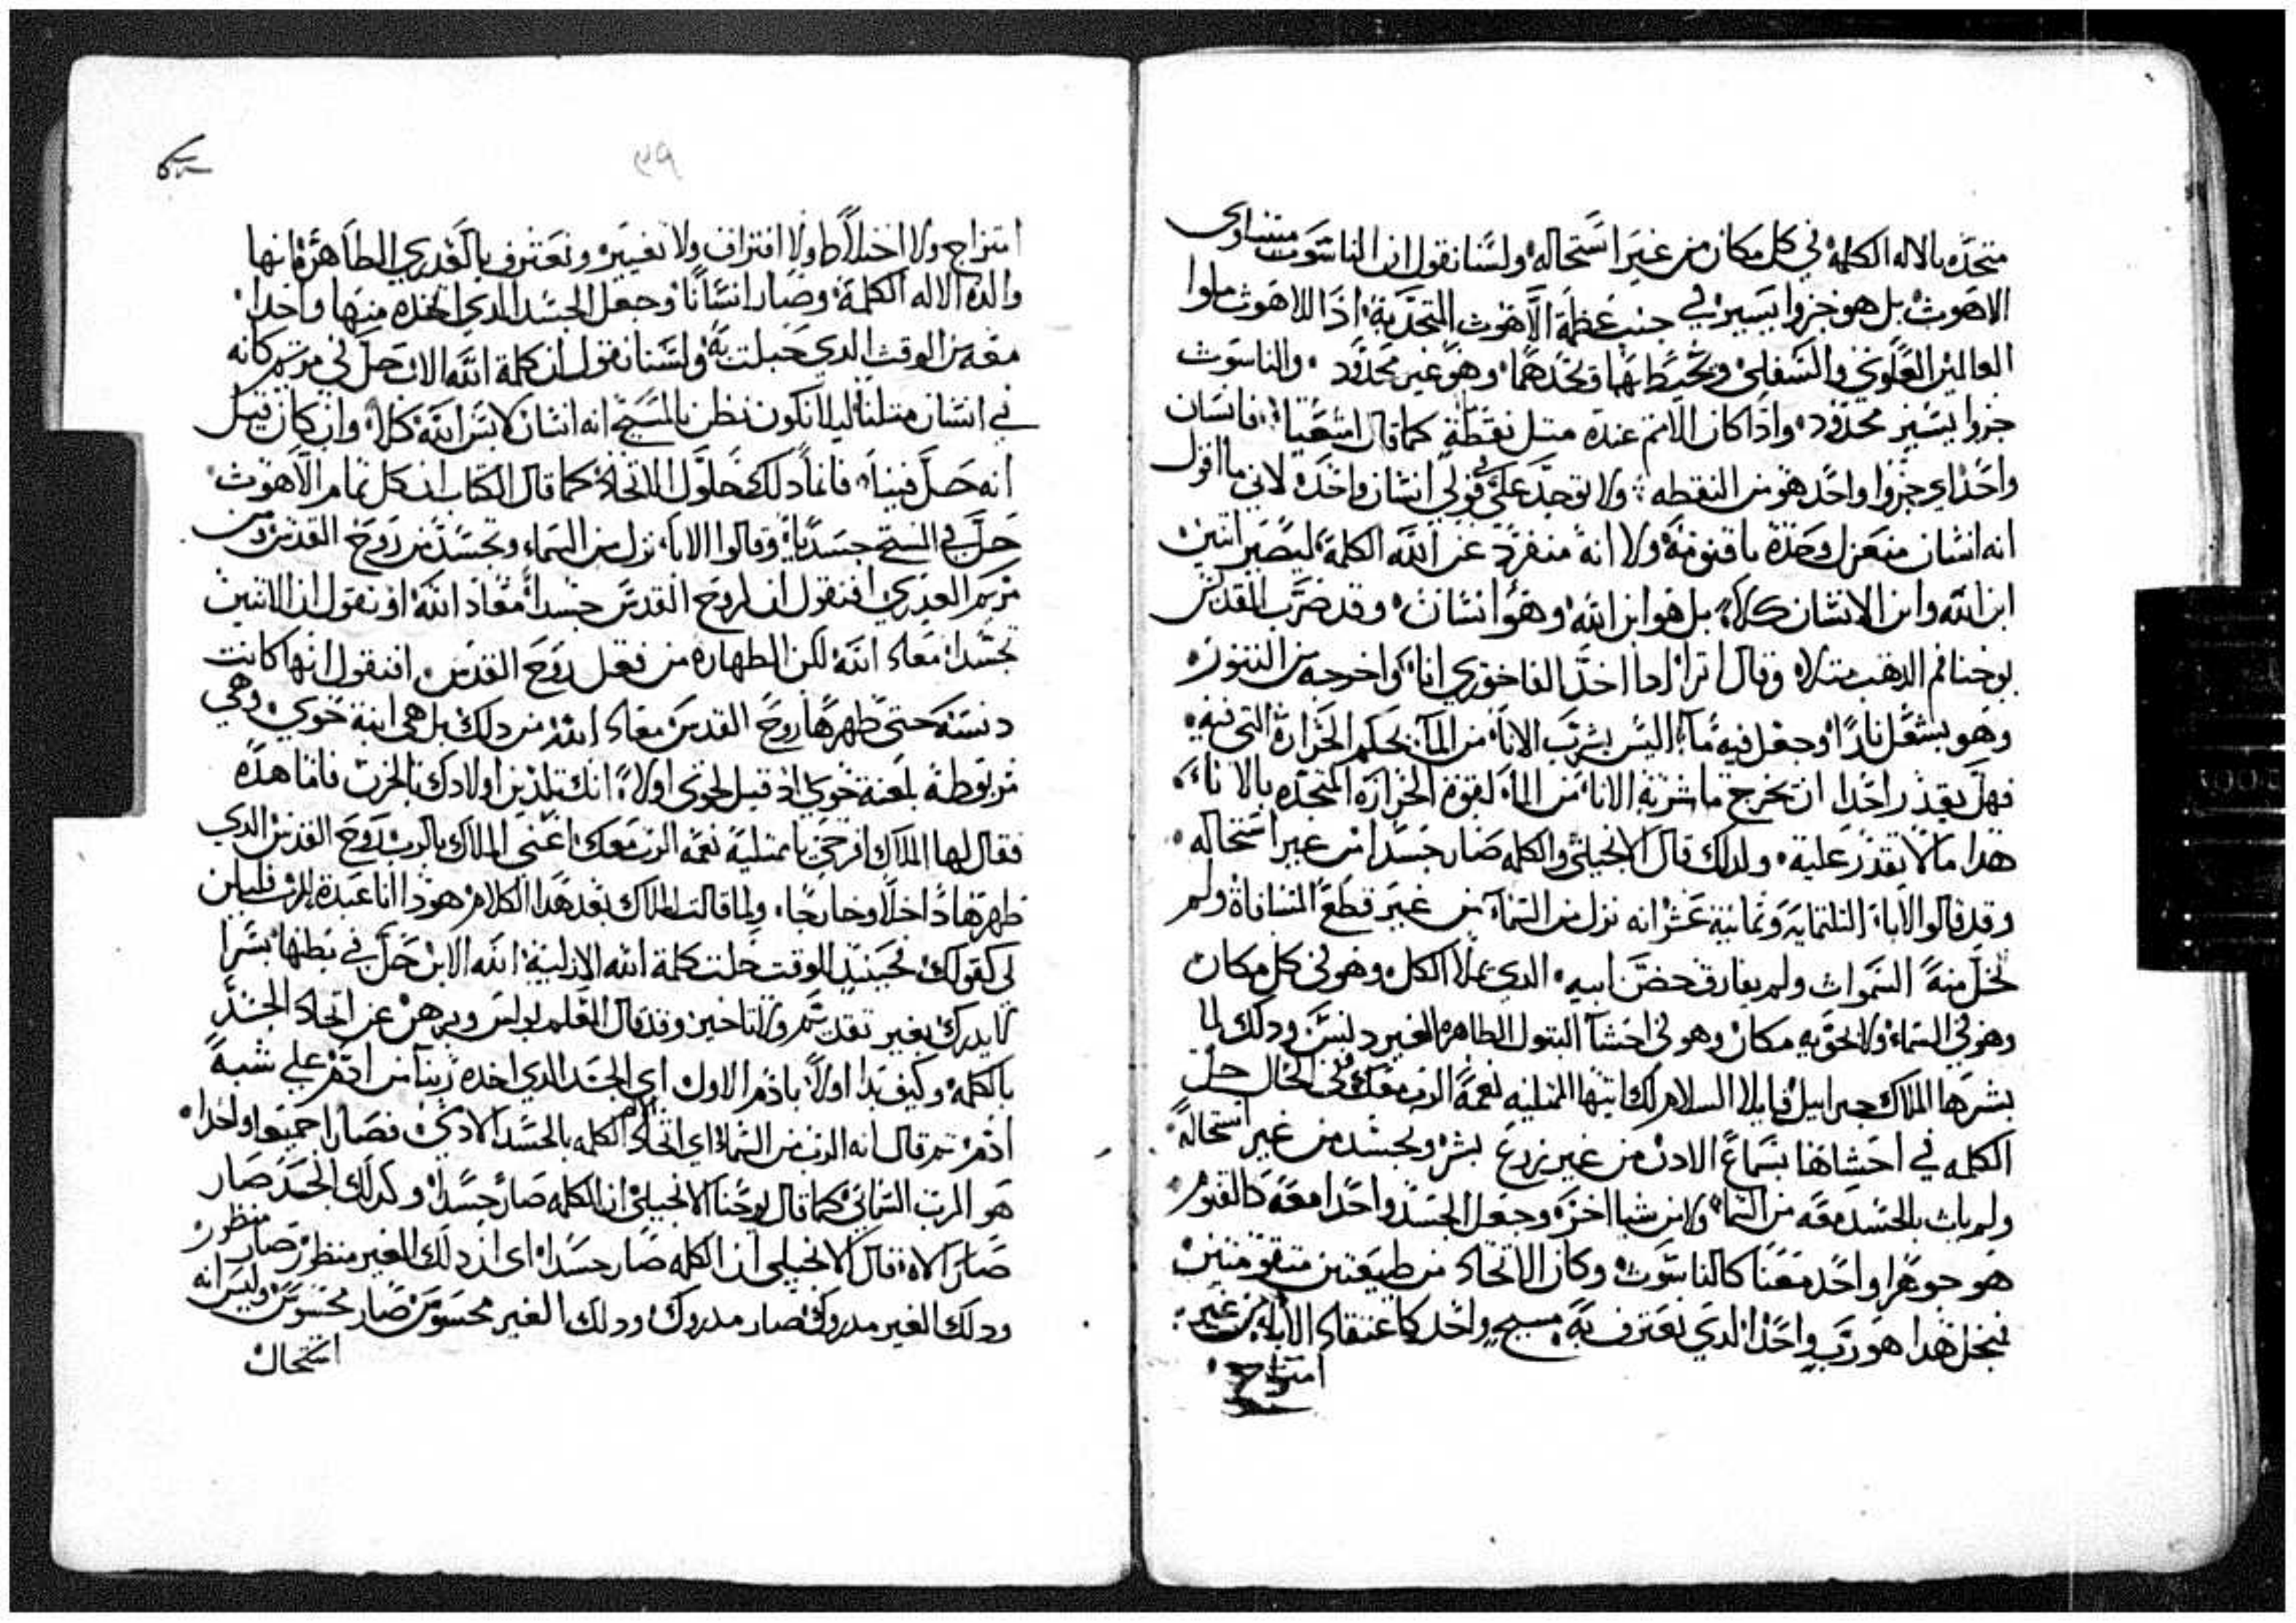 متحده بالاله الكلمة في كل مكان من غير استحاله ولسنا نقول ان الناسوت متساوى
الاهوت بل هو جزوا يسير في جنب عظمة الاهوت المتحد به اذا اللاهوت ملوا
العالمين العلوي والسفلي ومحيط بهما ويحدهما وهو غير محدود والناسوت
جزوا يسير محدود واذا كان الامم عنده متل نقطة كما قال اشعيا فانسان
واحد اي جزوا واحد هو من النقطه ولا توجد علي في قولي انسان واحده لاني ما اقول
انه انسان منعزل وحده باقنومة ولا انه منفرد عن الله الكلمة ليصير اتنين
ابن الله وابن الانسان كلا بل هو ابن الله وهو انسان وقد ضرب المقدس
يوحنا فم الدهب متلاه وقال اترا اذا اخذ الفاخوري انا واخرجه من التنور
وهو يشعل نارا وجعل فيه ما اليس يشرب الانا من الما بحكم الحرارة التي فيه
فهل يقدر احدا ان يخرج ما شربه الانا من الما لقوة الحرارة المتحده بالاناء
هدا ما لا يقدر عليه ولدلك قال الانجيلي والكلمه صار جسدا من غير استحاله
وقد قالوا الاباء التلتمايه وتمانية عشر انه نزل من السماء من غير قطع المسافاة ولم
تخل منه السموات ولم يفارق حضن ابيه الدي يملا الكل وهو في كل مكان
وهو في السماء ولا يحويه مكان وهو في احشا البتول الطاهره الغير دنس ودلك لما
بشرها الملاك جبراييل قايلا السلام لك ايتها الممتليه نعمة الرب معك ففي الحال حل
الكلمه في احشاها بسماع الادن من غير زرع بشر وتجسد من غير استحالة
ولم يات بالجسد معه من السما ولا من شيا اخر وجعل الجسد واحدا معه كالقنوم
هو جوهرا واحد معنا كالناسوت وكان الاتحاد من طبيعتين متقومتين
فيجل هدا هو رب واحد الدي نعترف به مسيح واحد كاعتقاد الاباء من غير
امتزاج
٣٩
امتزاج ولا اختلاط ولا افتراق ولا تغيير ونعترف بالعدري الطاهرة انها
والدة الاله الكلمة وصار انسانا وجعل الجسد الدي اتخده منها واحدا
معه من الوقت الدي حبلت به ولسنا نقول ان كلمة الله الاب حل في مريم كانه
في انسان متلنا ليلا نكون نظن بالمسيح انه انسان لابس الله كلا وان كان قيل
انه حل فينا فانما دلك حلول للاتحاد كما قال الكتاب ان كل تمام الاهوت
حل في المسيح جسديا وقالوا الابا نزل من السماء وتجسد من روح القدس ومن
مريم العدري افنقول ان لروح القدس جسدا معاد الله او نقول ان الاتنين
تجسدا معاد الله لكن الطهارة من فعل روح القدس افنقول انها كانت
دنسة حتي طهرها روح القدس معاد الله من دلك بل هي ابنة حوي وهي
مربوطة بلعنة حوي اد قيل لحوي اولا انك تلدين اولادك بالحزن فاما هده
فقال لها الملاك افرحي يا ممتلية نعمه الرب معك اعني الملاك بالرب روح القدس الدي
طهرها داخلا وخارجا ولما قالت للملاك بعد هدا الكلام هودا انا عبدة للرب فليكن
لي كقولك فحينيد الوقت حلت كلمة الله الازلية الله الابن حل في بطنها بشرا
لا يدرك بغير تقديم ولا تاخير وقد قال المعلم بولس ويبرهن عن اتحاد الجسد
بالكلمة وكيف بدا اولا بادم الاول اي الجسد الدي اخده ربنا من ادم علي شبه
ادم تم قال انه الرب من السماء اي اتحاد الكلمه بالجسد الادمي فصارا جميعا واحدا
هو الرب السماني كما قال يوحنا الانجيلي ان الكلمه صار جسدا وكدلك الجسد صار
صار الاه قال الانجيلي ان الكلمه صار جسدا اي ان دلك الغير منظور صار منظور
ودلك الغير مدروك صار مدروك ودلك الغير محسوس صار محسوس وليس انه
استحال